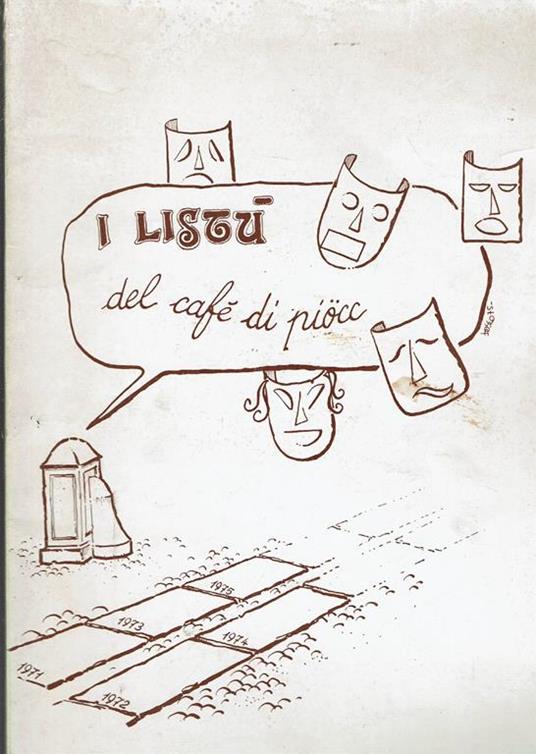 I LISTÚ
del café di piöcc
1975
1973
1974
1971
1972